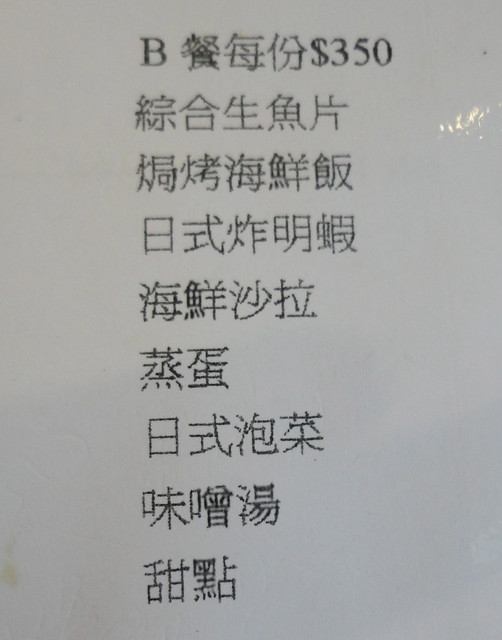 B 餐每份$350
綜合生魚片
焗烤海鮮飯
日式炸明蝦
海鮮沙拉
蒸蛋
日式泡菜
味噌湯
甜點